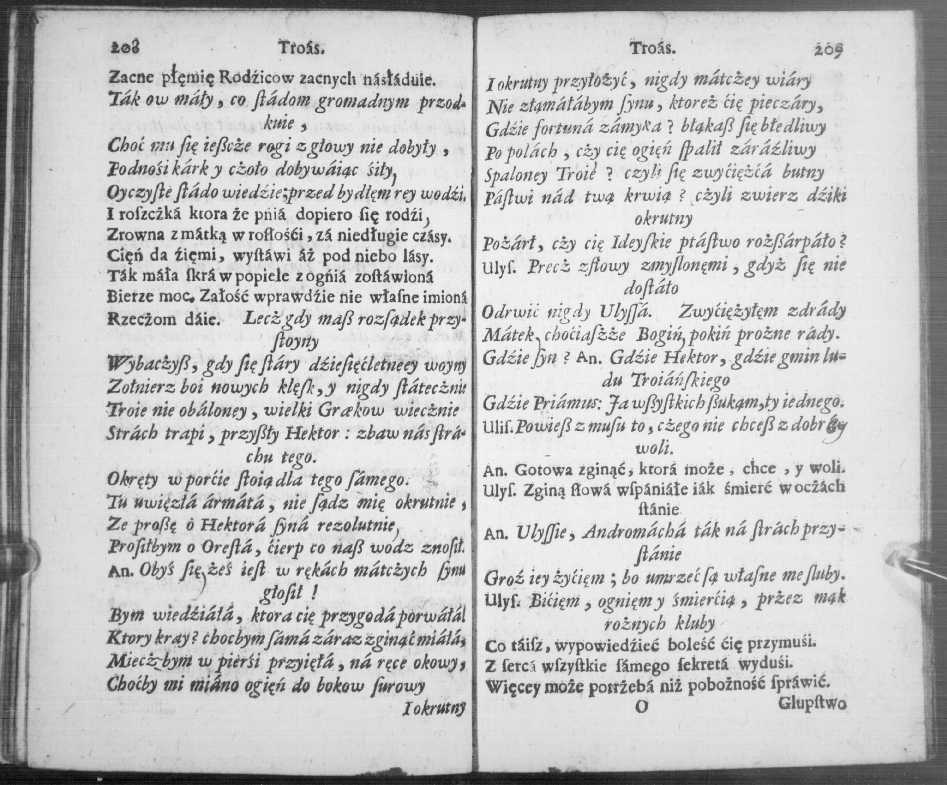 208 Troás.
Zacne plęmię Rodźicow zacnych násłáduie.
Ták ow máły, co ſtádom gromadnym przod-
kuie,
Choć mu się ieſzcże rogi z głowy nie dobyły,
Podnośi kárk y cżoło dobywáiąc śiły,
Oyczyſte ſtádo wiedźie; przed bydłęm rey wodźi.
I roſzcżká ktora że pńiá dopiero się rodźi,
Zrowna z mátką w roſłośći, zá niedługie czásy.
Cięń da źięmi, wyſtáwi áż pod niebo lásy.
Ták máła ſkrá w popiele z ogńiá zoſtáwioná
Bierze moc. Załość wprawdźie nie właſne imioná
Rzecżom dáie. Lecż gdy maß rozſądek przy-
ſtoyny
Wybaczyß, gdy się ſtáry dźieſięćletneey woyny
Zołnierz boi nowych klęſk, y nigdy ſtátecżnie
Troie nie obáloney, wielki Grækow wiecżnie
Strách trapi, przyßły Hektor: zbaw nás ſtrá-
chu tego.
Okręty w porćie ſtoią dla tego ſámego.
Tu uwięzłá ármátá, nie ſądz mię okrutnie,
Ze proßę ò Hektorá ſyná rezolutnie,
Prośiłbym o Oreſtá, ćierp co naß wodz znośił.
An. Obyś się, żeś ieſt w rękách mátcżych ſynu
głośił!
Bym wiedźiáłá, ktora cię przygodá porwáłá
Ktory kray? chocbym ſámá záraz zginąć miáłá,
Miecż bym w pierśi przyięłá, ná ręce okowy,
Choćby mi miáno ogięń do bokow ſurowy
I okrutny
Troás. 209
I okrutny przyłożyć, nigdy mátcżey wiáry
Nie złamáłábym ſynu, ktoreż ćię pieczáry,
Gdźie fortuná zámyka? błąkaß się błedliwy
Po polách, cży cię ogięń ſpalił záráźliwy
Spaloney Troie? czyli się zwyćiężćá butny
Páſtwi nád twą krwią? cżyli zwierz dźiki
okrutny
Pożárł, cży cię Ideyſkie ptáſtwo rożßárpáło?
Ulyſ. Precż zſłowy zmyſlonęmi, gdyż się nie
doſtáło
Odrwić nigdy Ulyſſá. Zwyćiężyłęm zdrády
Mátek, choćiaſzże Bogiń, pokiń prożne rády.
Gdźie ſyn? An. Gdźie Hektor, gdźie gmin lu-
du Troiáńſkiego
Gdźie Priámus: Ja wßyſtkich ßukąm, ty iednego.
Uliſ. Powieß z muſu to, cżego nie chceß z dobréy
woli.
An. Gotowa zginąć, ktorá może, chce, y woli.
Ulyſ. Zginą ſłowá wſpániáłe iák śmierć w oczách
ſtánie
An. Ulyſſie, Andromáchá ták ná ſtrách przy-
ſtánie
Groź iey żyćięm; bo umrzeć ſą właſne me ſluby.
Ulyſ. Bićięm, ognięm y śmierćią, przez mąk
rożnych kluby
Co táiſz, wypowiedźieć boleść ćię przymuśi.
Z ſercá wſzyſtkie ſámego ſekretá wyduśi.
Więcey może potrżebá niż pobożność ſpráwić.
O Glupſtwo